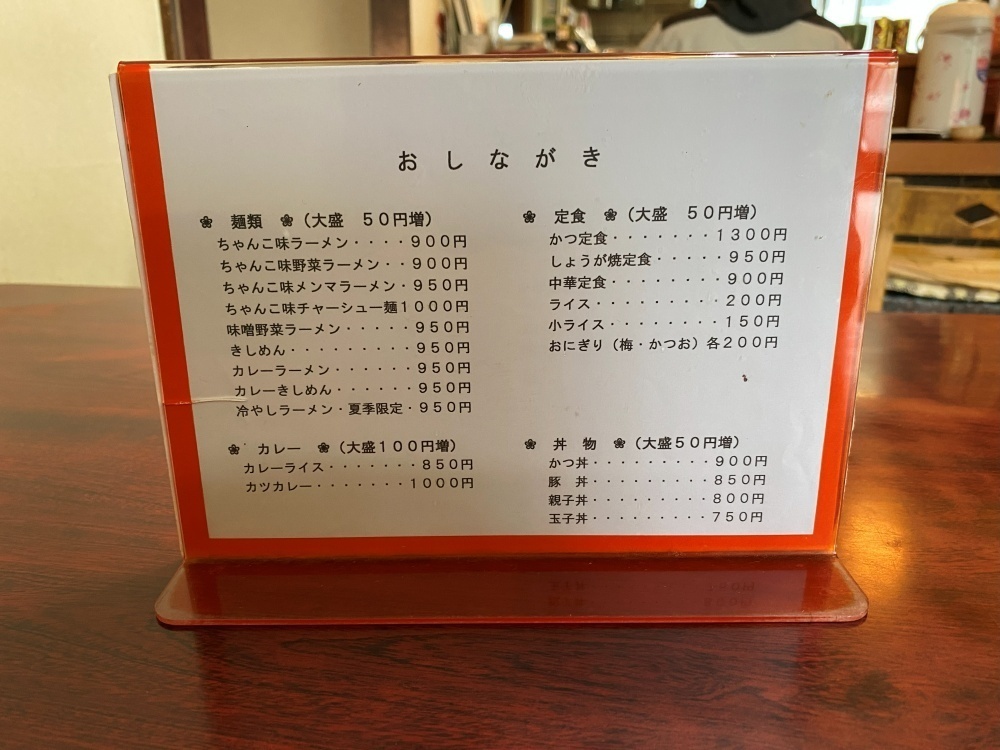 おしながき
❀ 麺類 ❀（大盛 ５０円増）
ちゃんこ味ラーメン・・・・９００円
ちゃんこ味野菜ラーメン・・９００円
ちゃんこ味メンマラーメン・９５０円
ちゃんこ味チャーシュー麺１０００円
味噌野菜ラーメン・・・・・９５０円
きしめん・・・・・・・・・９５０円
カレーラーメン・・・・・・９５０円
カレーきしめん・・・・・・９５０円
冷やしラーメン・夏季限定・９５０円
❀ カレー ❀（大盛１００円増）
カレーライス・・・・・・・８５０円
カツカレー・・・・・・・１０００円
❀ 定食 ❀（大盛 ５０円増）
かつ定食・・・・・・・１３００円
しょうが焼定食・・・・・９５０円
中華定食・・・・・・・・９００円
ライス・・・・・・・・・２００円
小ライス・・・・・・・・１５０円
おにぎり（梅・かつお）各２００円
❀ 丼 物 ❀（大盛５０円増）
かつ丼・・・・・・・・・９００円
豚 丼・・・・・・・・・８５０円
親子丼・・・・・・・・・８００円
玉子丼・・・・・・・・・７５０円